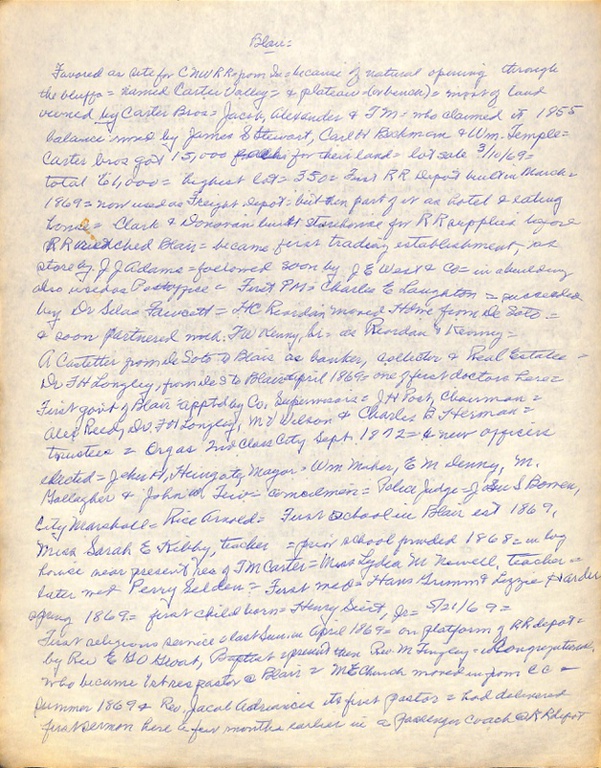 Blair=
Favored as site for CNWRR from Ia= because of natural opening through
the bluffs = named Carter Valley = & plateau = most of land
owned by Carter Bros = Jacob, Alexander & T M = who claimed it 1855
balance owned by James S Stewart, Carl H Bachman & Wm. Temple =
Carter bros got 15,000 for their land = lot sale 3/10/69 =
total 61,000 = highest lot = 350 = First RR Depot built in March =
1869 = now used as Freight Depot = but then part of it as hotel & eating
house = Clark & Donovan built storehouse for RR supplies before
RR reached Blair = became first trading establishment, as
store by J J Adams = followed soon by J E West & Co = in a building
also used as Postoffice = First PM = Charles E Laughton = succeeded
by Dr Silas Fawcett = H C Reordan moved Hdwe from De Soto =
& soon partnered with F W Kenny, Sr = as Reordan & Kenny =
A Castetter from De Soto to Blair as banker, collector & Real Estate =
Dr F H Longley, from De S to Blair April 1869 = one of first doctors here =
First govt of Blair apptd by Co. Supervisors = J H Post, Chairman =
Alex Reed, Dr. F H Longley, M V Wilson & Charles B Herman =
trustees = Orgas 2nd Class City Sept. 1872 = & new officers
elected = John H, Hungate, Mayor = Wm Maher, E M Denny, M.
Gallagher & John W. = councilmen = Police Judge = Jesse S Bowen,
City Marshall = Rice Arnold = First school in Blair est 1869,
Miss Sarah E Kibby, teacher = prior school provided 1868 = in log
house near present res of T M Carter = Miss Lydia M Newell, teacher =
later Mrs Perry Selden = First md = Hans Grimm & Lizzie Harder
spring 1869 = first child born = Henry, Jr = 5/21/69 =
First religious service = last Sun. in April 1869 = on platform of RR depot =
by Rev E G O Groat, Baptist = present then Rev. M Tingley = Congregational,
who became 1st res pastor @ Blair = M E Church moved in from C C =
summer 1869 & Rev. Jacob Adriance its first pastor = had delivered
first sermon here a few months earlier in a passenger coach @ RR depot